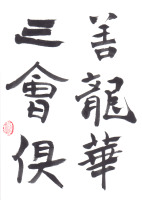 善龍華
三會俱